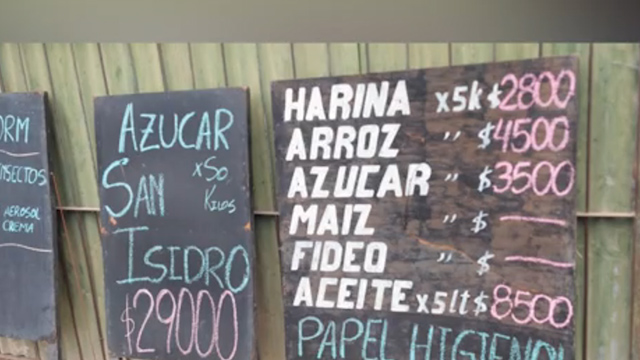 ORM
NSECTOS
AEROSOL
CREMA
AZUCAR
SAN x50
Kilos
ISIDRO
$29000
HARINA x5k $2800
ARROZ " $4500
AZUCAR " $3500
MAIZ " $ —
FIDEO " $ —
ACEITE x5lt $8500
PAPEL HIGIENI